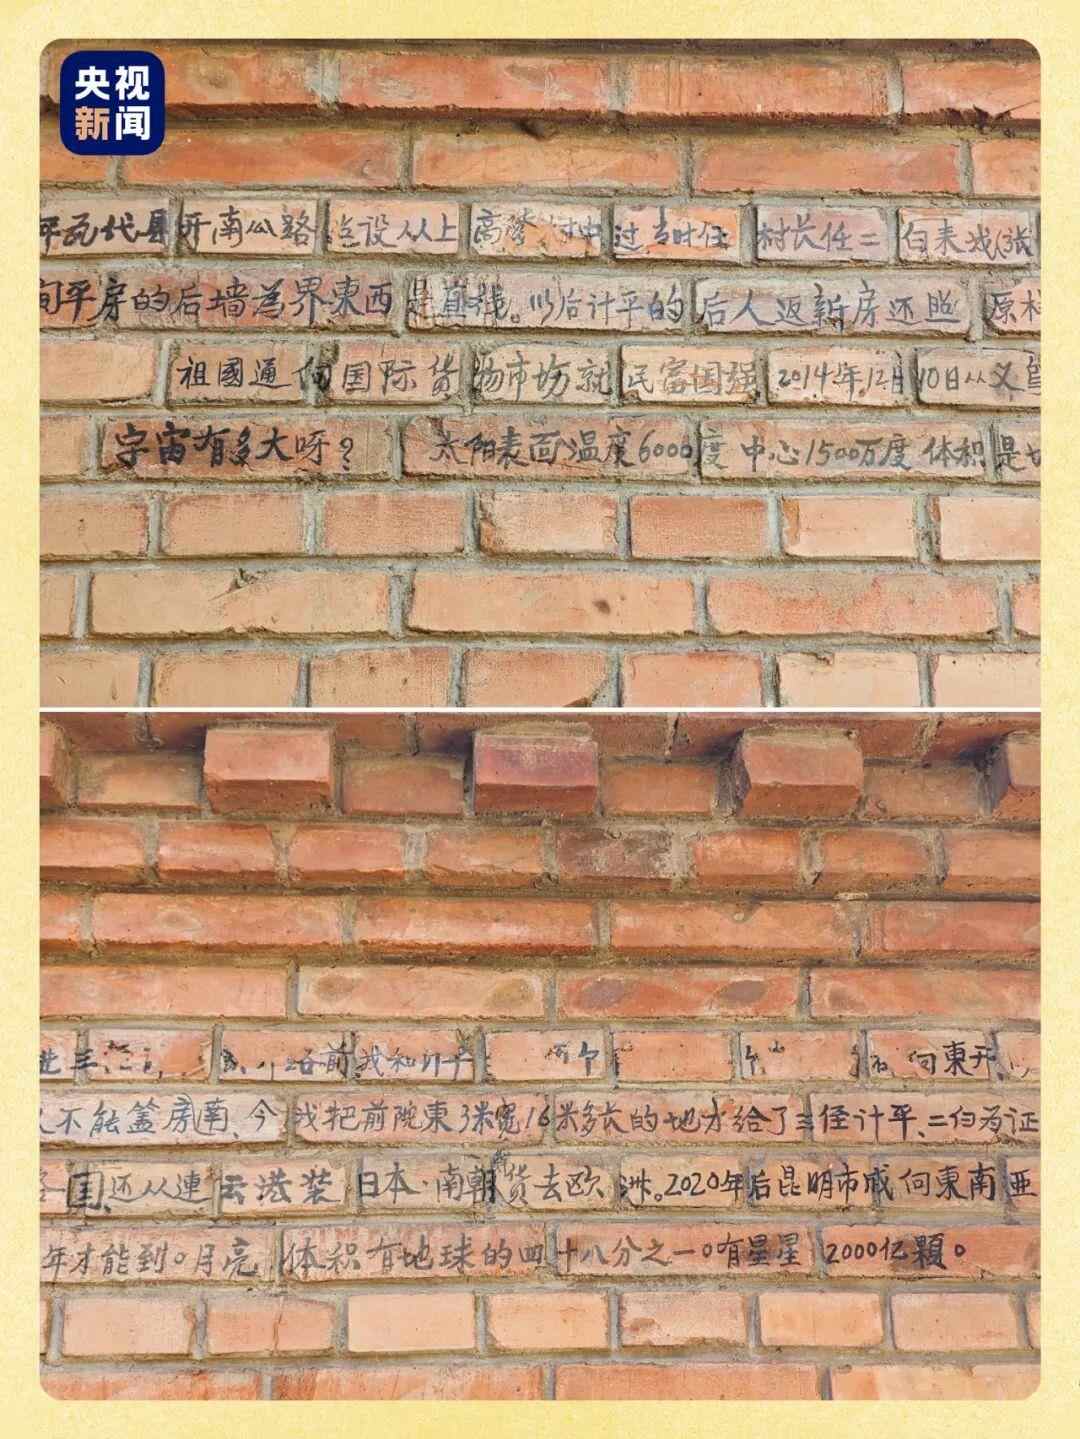 央视
新闻
县 开南公路 设从上 高 村中 过 时任 村长任二 白表
间平房的后墙為界東西是直线。以后计平的后人返新房还照原
祖國通向国际货物市场就民富国强2014年12月10日从又
宇宙有多大呀? 太阳表面温度6000度中心1500万度体积是
前我和计平 向東开
不能盖房南、今我把前院東3米宽16米多长的地才给了三径计平、二伯为证
国、还从連云港装日本·南朝鲜货去欧洲。2020年后昆明市成向東南亚
年才能到。月亮体积有地球的四十八分之一。有星星2000亿顆。